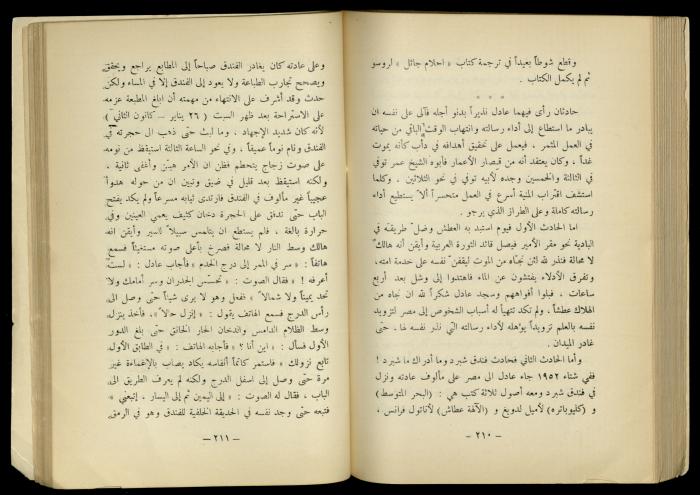 وقطع شوطاً بعيداً في ترجمة كتاب « احلام جائل » لروسو
ثم لم يكمل الكتاب .
* * *
حادثان رأى فيهما عادل نذيراً بدنو أجله فآلى على نفسه ان
يبادر ما استطاع إلى أداء رسالته وانتهاب الوقت الباقي من حياته
في العمل المثمر ، فيعمل على تحقيق أهدافه في دأب كأنه يموت
غداً ، وكان يعتقد أنه من قصار الأعمار فأبوه الشيخ عمر توفي
في الثالثة والخمسين وجده لأبيه توفي في نحو الثلاثين . وكلما
استشف اقتراب المنية أسرع في العمل متحسراً ألا يستطيع أداء
رسالته كاملة وعلى الطراز الذي يرجو .
اما الحادث الأول فيوم استبد به العطش وضل طريقه في
البادية نحو مقر الأمير فيصل قائد الثورة العربية وأيقن أنه هالك
لا محالة فنذر لله لئن نجاه من الموت ليقفن نفسه على خدمة امته ،
وتفرق الأدلاء يفتشون عن الماء فاهتدوا إلى وشل بعد أربع
ساعات ، فبلوا أفواههم وسجد عادل شكراً لله ان نجاه من
الهلاك عطشاً ، ولم تكد تتهيأ له أسباب الشخوص إلى مصر لتزويد
نفسه بالعلم تزويداً يؤهله لأداء رسالته التي نذر نفسه لها ، حتى
غادر الميدان .
وأما الحادث الثاني فحادث فندق شبرد وما أدراك ما شبرد !
ففي شتاء ١٩٥٢ جاء عادل الى مصر على مألوف عادته ونزل
في فندق شبرد ومعه أصول ثلاثة كتب هي : (البحر المتوسط)
و (كليوباتره) لأميل لدويغ و (الآلهة عطاش) لأناتول فرانس ،
— ٢١٠ —
وعلى عادته كان يغادر الفندق صباحاً إلى المطابع يراجع ويحقق
ويصحح تجارب الطباعة ولا يعود إلى الفندق إلا في المساء ولكن
حدث وقد أشرف على الانتهاء من مهمته أن ابلغ المطبعة عزمه
على الاستراحة بعد ظهر السبت ( ٢٦ يناير — كانون الثاني )
لأنه كان شديد الإجهاد ، وما لبث حتى ذهب الى حجرته في
الفندق ونام نوماً عميقاً ، وفي نحو الساعة الثالثة استيقظ من نومه
على صوت زجاج يتحطم فظن ان الأمر هين وأغفى ثانية .
ولكنه استيقظ بعد قليل في ضيق وتبين ان من حوله هدوءاً
عجيباً غير مألوف في الفندق فارتدى ثيابه مسرعاً ولم يكد يفتح
الباب حتى تدفق على الحجرة دخان كثيف يعمي العينين وفي
حرارة بالغة ، فلم يستطع ان يتلمس سبيلاً للسير وأيقن انه
هالك وسط النار لا محالة فصرخ بأعلى صوته مستغيثاً فسمع
هاتفاً : « سر في الممر إلى درج الخدم » فأجاب عادل : « لست
أعرفه ! » فقال الصوت : « تحسس الجدران وسر أمامك ولا
تحد يميناً ولا شمالاً » ففعل وهو لا يرى شيئاً حتى وصل الى
رأس الدرج فسمع الهاتف يقول : « إنزل حالاً » ، فأخذ ينزل
وسط الظلام الدامس والدخان الحار الخانق حتى بلغ الدور
الأول فسأل : « اين أنا ؟ » فأجابه الهاتف : « في الطابق الأول
تابع نزولك » فاستمر كاتماً أنفاسه يكاد يصاب بالإغماءة غير
مرة حتى وصل إلى اسفل الدرج ولكنه لم يعرف الطريق الى
الباب ، فقال له الصوت : « إلى اليمين ثم إلى اليسار . إتبعني »
فتبعه حتى وجد نفسه في الحديقة الخلفية للفندق وهو في الرمق
— ٢١١ —